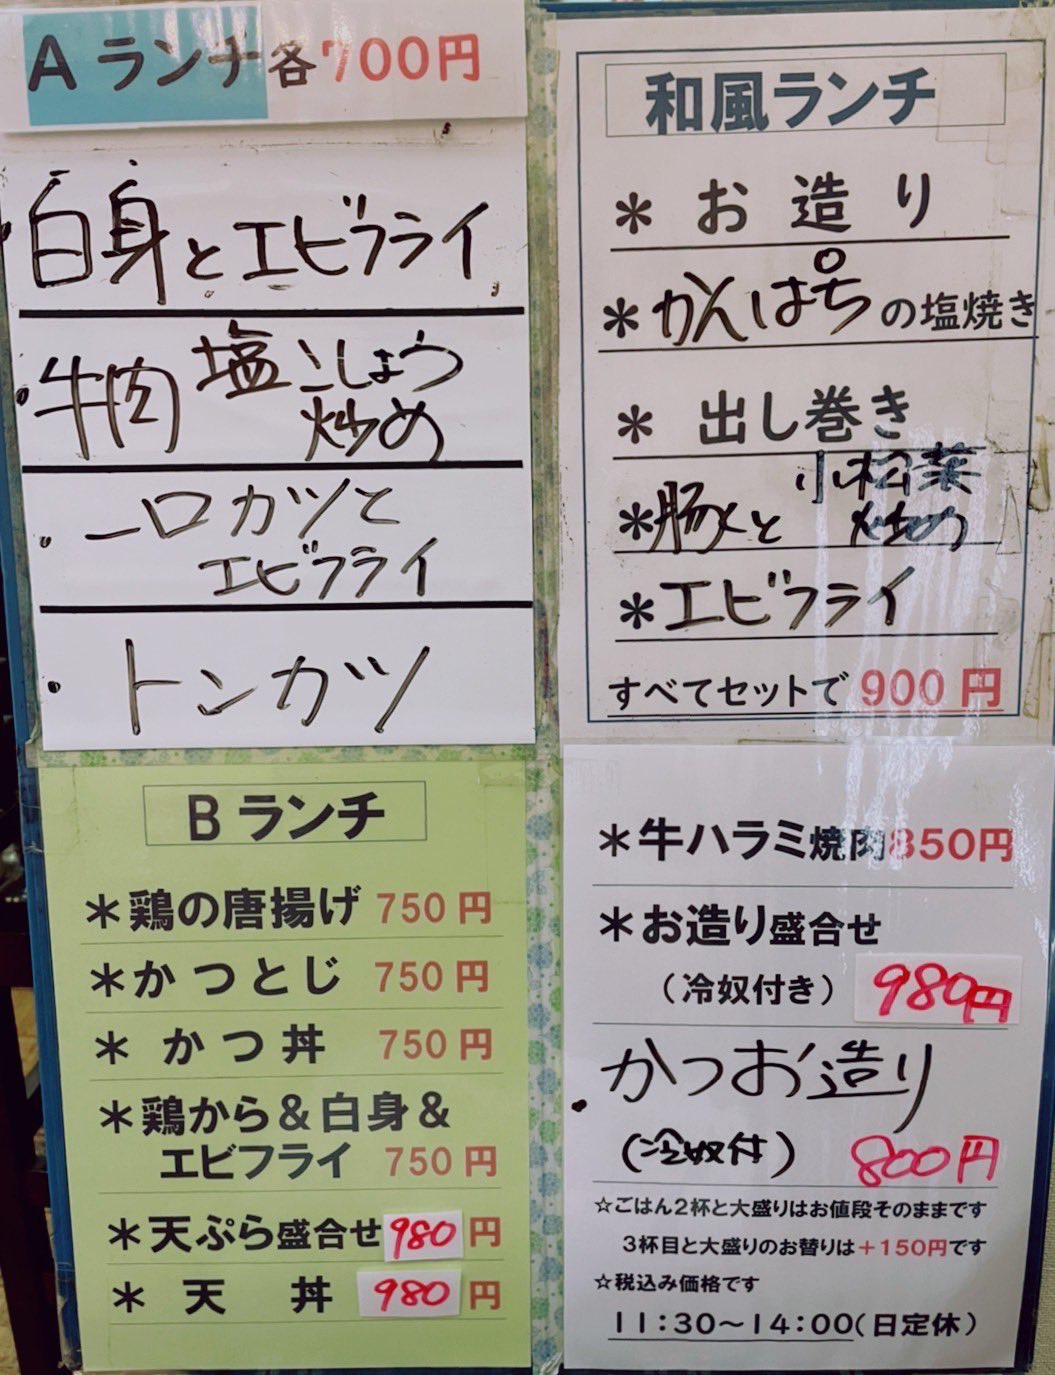 A ランチ各700円
・白身とエビフライ
・牛肉 塩こしょう
炒め
・一口カツと
エビフライ
・トンカツ
和風ランチ
＊お造り
＊かんぱちの塩焼き
＊出し巻き
＊豚肉と小松菜
炒め
＊エビフライ
すべてセットで 900円
B ランチ
＊鶏の唐揚げ 750円
＊かつとじ 750円
＊かつ丼 750円
＊鶏から＆白身＆
エビフライ 750円
＊天ぷら盛合せ 980円
＊天丼 980円
＊牛ハラミ焼肉850円
＊お造り盛合せ
（冷奴付き） 980円
・かつお造り
（冷奴付） 800円
☆ごはん２杯と大盛りはお値段そのままです
３杯目と大盛りのお替りは＋150円です
☆税込み価格です
11：30～14：00（日定休）